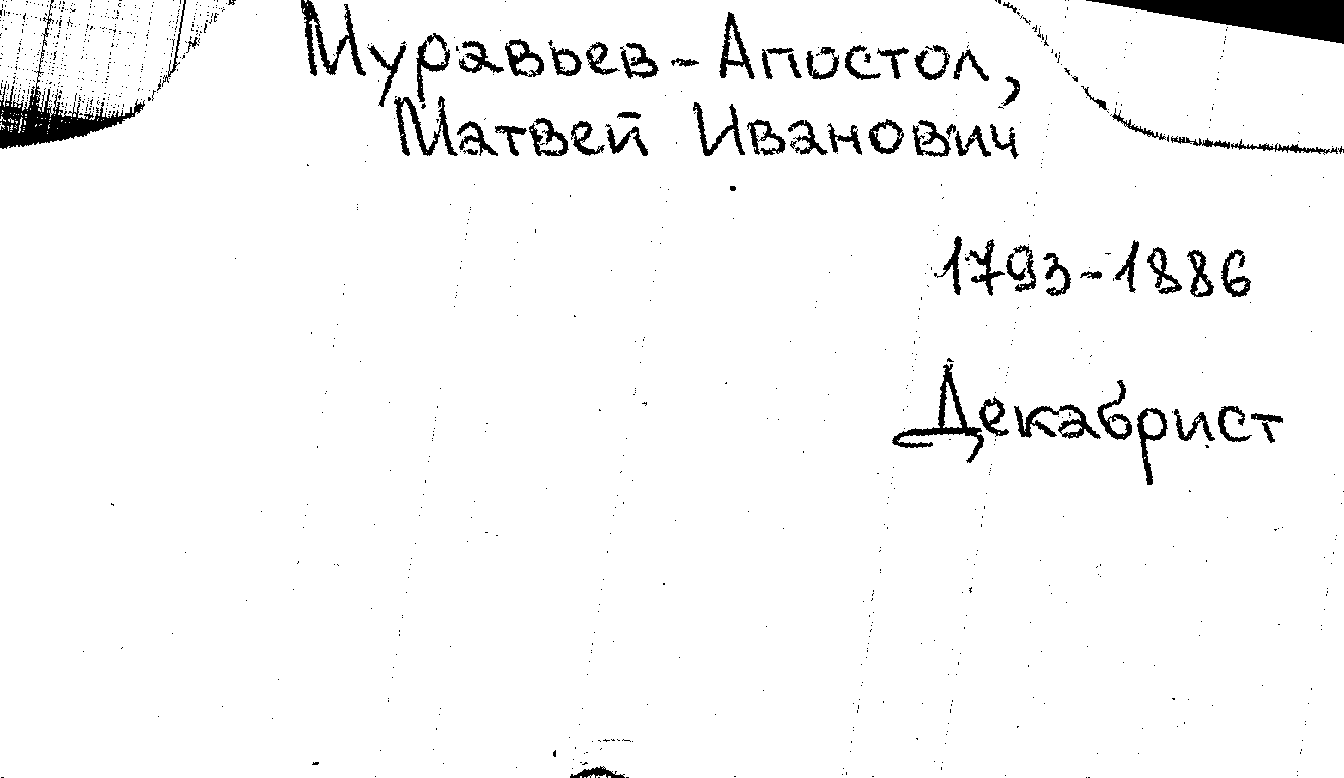 Муравьев-Апостол,
Матвей Иванович
1793-1886
Декабрист